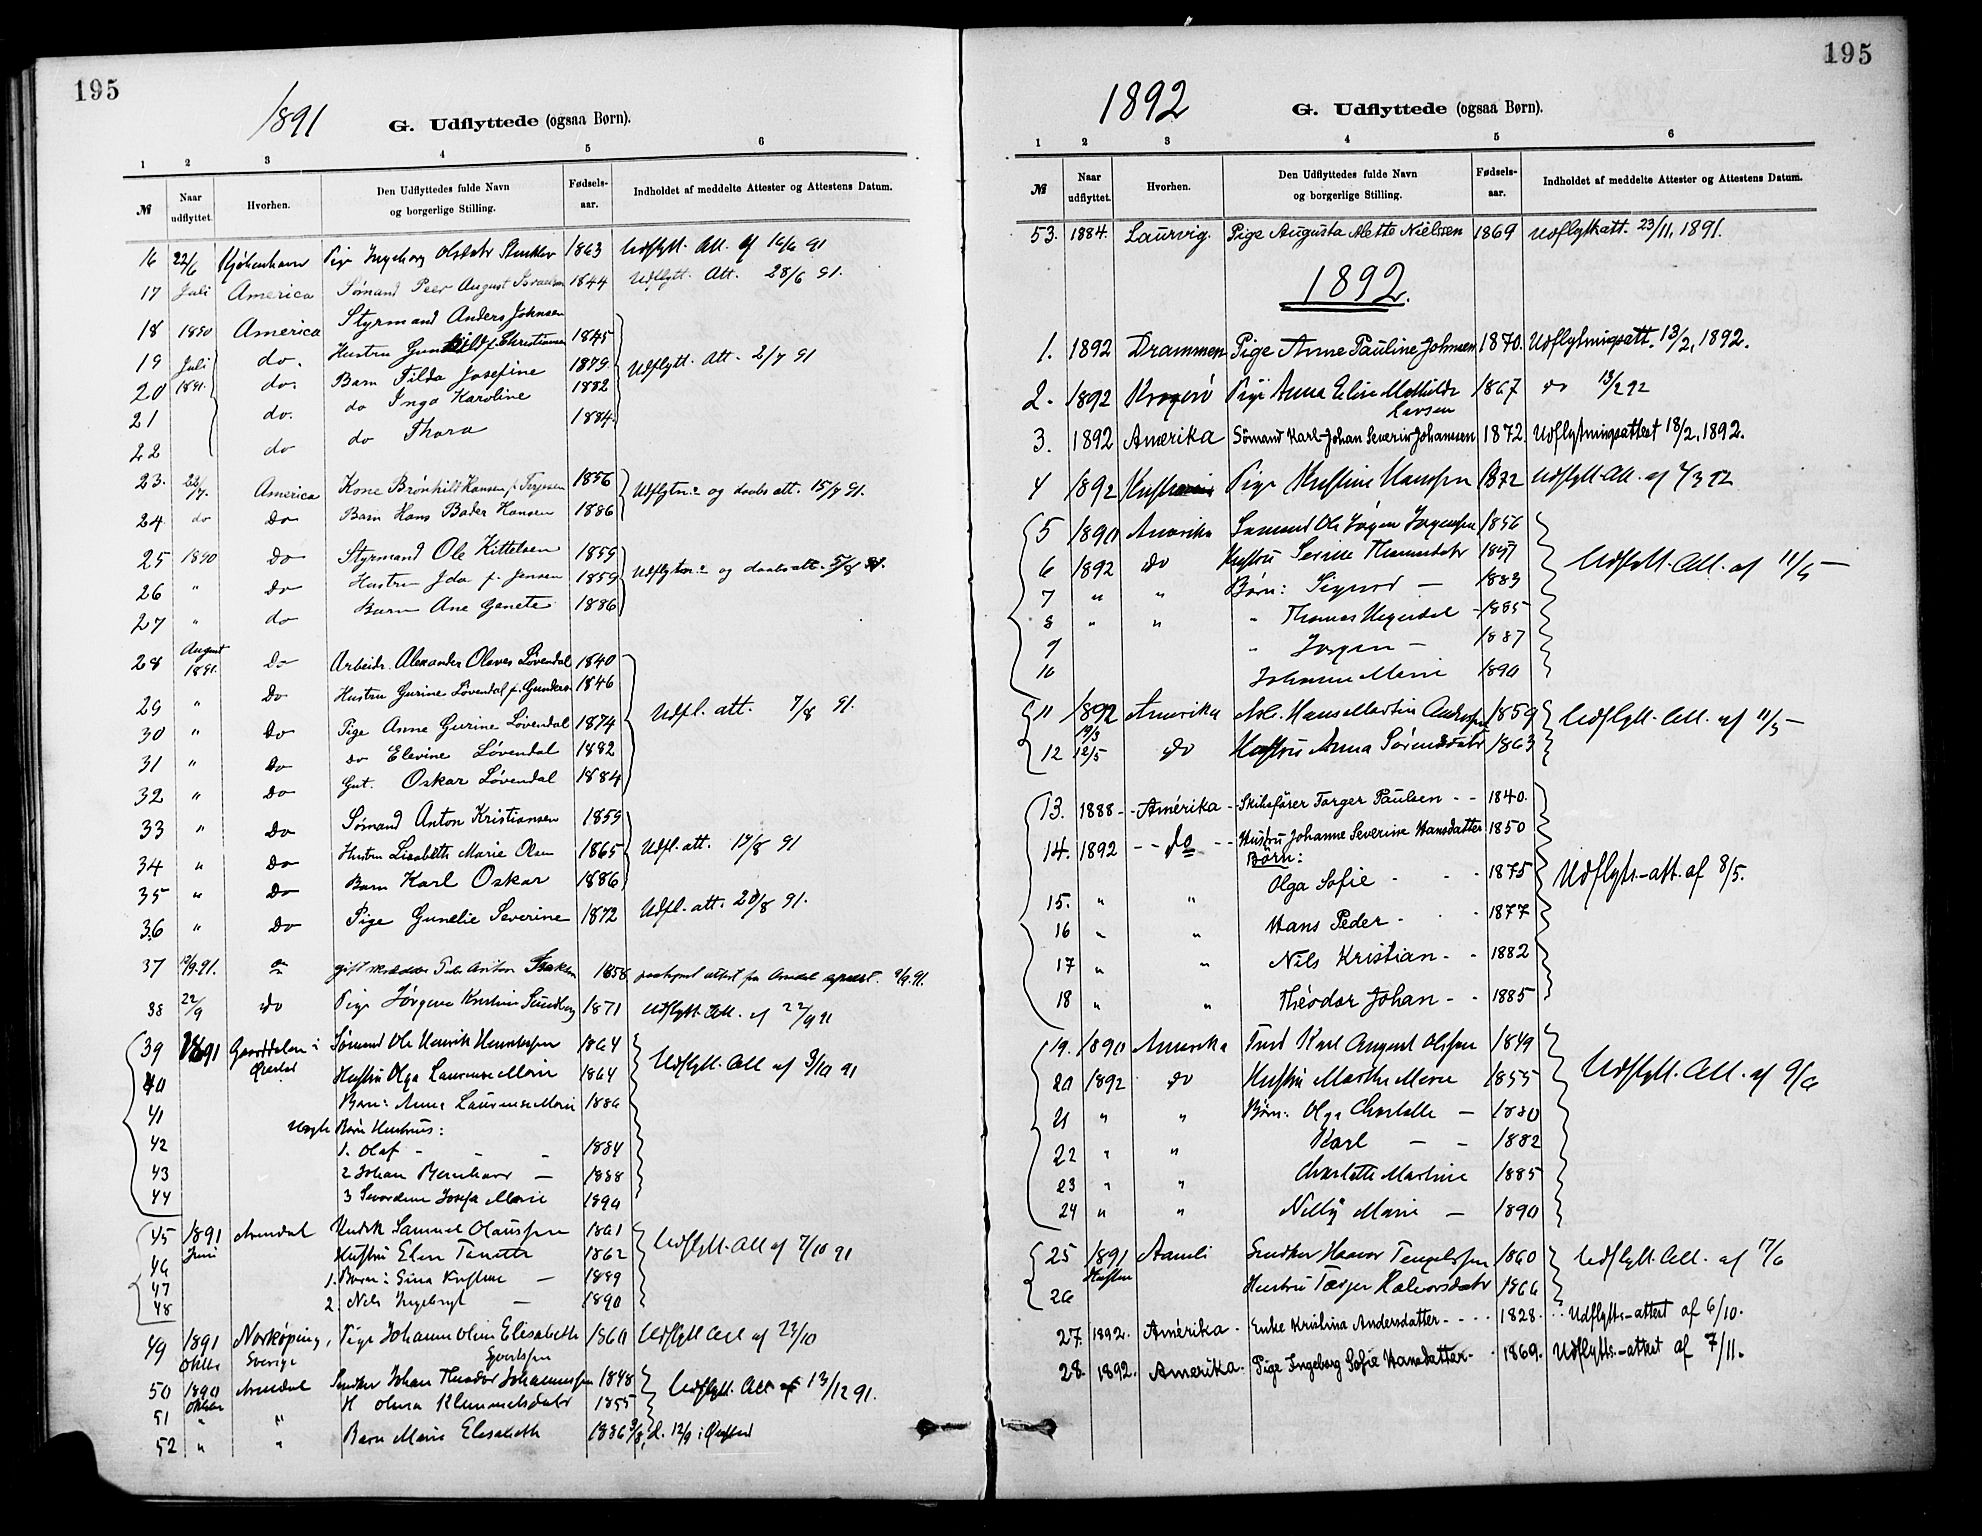 195
1891
G. Udflyttede (ogsaa Børn).
1 2 3 4 5 6
№ Naar udflyttet. Hvorhen. Den Udflyttedes fulde Navn og borgerlige Stilling. Fødsels-aar. Indholdet af meddelte Attester og Attestens Datum.
16 22/6 Kjøbenhavn Pige Ingeborg Olsdatr 1863 Udflytt. Att. af 16/6 91
17 Juli America Sømand Peer August 1844 Udflytt. Att. 28/6 91.
18 1890 America Styrmand Anders Johnsen 1845
19 Juli do. Hustru Gunhild f. Christiansen 1879
20 1891. do. Barn Tilda Josefine 1882 Udflytt. Att. 2/7 91
21 do. do Inga Karoline 1884.
22 do do Thora
23. 22/7. America Kone Brønhild Hansen f. Terjesen 1856 Udflytn.- og daabsatt. 15/7 91.
24. do Do Barn Hans Bader Hansen 1886
25 1890 Do Styrmand Ole Kittelsen 1859
26 " Do Hustru Ida f. Jensen 1859 Udflytn.- og daabsatt. 5/8 91.
27 " do Barn Ane Genete 1886
28 August 1891. Do Arbeidr. Alexander Olaves Løvendal 1840
29 " Do Hustru Gurine Løvendal f. Gunders. 1846
30 " Do Pige Anne Gurine Løvendal 1874 Udfl. att. 7/8 91.
31 " Do do Elevine Løvendal 1882
32 " Do Gut. Oskar Løvendal 1884
33 " Do Sømand Anton Kristiansen 1859
34 " Do Hustru Lisabeth Marie Olsen 1865 Udfl. att. 19/8 91
35 " Do Barn Karl Oskar 1886
36 " Do Pige Gunelie Severine 1872 Udfl. att. 20/8 91.
37 19/9.91. gift Anton Isaksen 1858 attest fra Arendal 9/9.91.
38 22/9 do Pige Jørgine Kristine Sundberg 1871 Udflytt. Att. af 22/9 91
39 1891 Gaarddalen i Øiestad Sømand Ole Henrik Henriksen 1864 Udflytt. Att af 3/10 91
40 Hustru Olga Laurense Marie 1864
41 Barn: Anna Laurense Marie 1886
Uægte Børn Hustrus:
42 1. Olaf - - - 1884
43 2 Johan Bernhard - 1888
44 3 Josefa Marie 1890
45 1891 Juni Arendal Samuel Olaussen 1861 Udflytt. Att af 7/10 91
46 Hustru Elen Tanette 1862
47 1. Børn: Gina Kristine - 1889
48 2. Nils Ingebrigt - 1890
49 1891 Oktbr Norkøping, Sverige Pige Johanne Oline Elisabeth Sjvertsen 1860 Udflytt Att af 23/10
50 1890 Oktbr Arendal Snedker Johan Theodor Johannessen 1848 Udflytt. Att af 13/12 91.
51 " " H Olena Klemmetsdatr 1855
52 " " Barn Marie Elisabeth 1886 3/8, d. 12/9 i Øiestad
195
1892
G. Udflyttede (ogsaa Børn).
1 2 3 4 5 6
№ Naar udflyttet. Hvorhen. Den Udflyttedes fulde Navn og borgerlige Stilling. Fødsels-aar. Indholdet af meddelte Attester og Attestens Datum.
53. 1884. Laurvig. Pige Augusta Alette Nielssen 1869 Udflyttatt. 23/11, 1891.
1892.
1. 1892 Drammen Pige Anne Pauline Johnsen 1870. Udflytningsatt. 13/2, 1892.
2. 1892 Kragerø Pige Anna Elise Mathilde Larsen 1867 do 13/2 92
3. 1892 Amerika Sømand Karl Johan Severin Johansen 1872 Udflytningsattest 18/2, 1892.
4 1892 Pige Kristine Hanssen 1872 Udflytt. Att. af 7/3 92
5 1890 Amerika Sømand Ole Jørgen Jørgensen 1856
6 1892 do Hustru Serine Thomasdatr 1857 Udflytt. Att. af 11/5 -
7 " " Børn: Sigurd - 1883
8 " " " Thomas - 1885
9 " Jørgen - 1887
10 Johanne Marie 1890
11 1892 Amerika Arb. Hans Martin Anderssen 1859 Udflytt. Att. af 11/5 -
12 12/5 do Hustru Anna Sørensdatr 1863
13. 1888 - - Amérika - - Skibsfører Torger Paulsen - - 1840.
14. 1892 - - do - - Hustru Johanne Severine Hansdatter 1850
Børn:
15. " " Olga Sofie - - - 1875 Udflytts.-att. af 8/5.
16 " " Hans Peder - - - 1877
17 " " Nils Kristian - - 1882
18 " " Théodor Johan - - 1885
19. 1890 Amerika Karl August Olsen 1849
20 1892 do Hustru Marthe Marie 1855 Udflytt. Att. af 9/6
21 " " Børn: Olga Charlotte - 1880
22 " " Karl - - 1882
23 " " Charlotte Martine 1885
24 " " Nelly Marie - 1890
25 1891 Høsten Aamli Snedker Haavor Tengelssen 1860 Udflytt. Att. af 17/6
26 Hustru Targer Halvorsdatr 1866
27. 1892. Amérika - Enke Kristina Andersdatter - - - - 1828. Udflytts.-attest af 6/10.
28. 1892. Amérika - Pige Ingeborg Sofie Hansdatter - - 1869. Udflytts.-attest af 7/11.